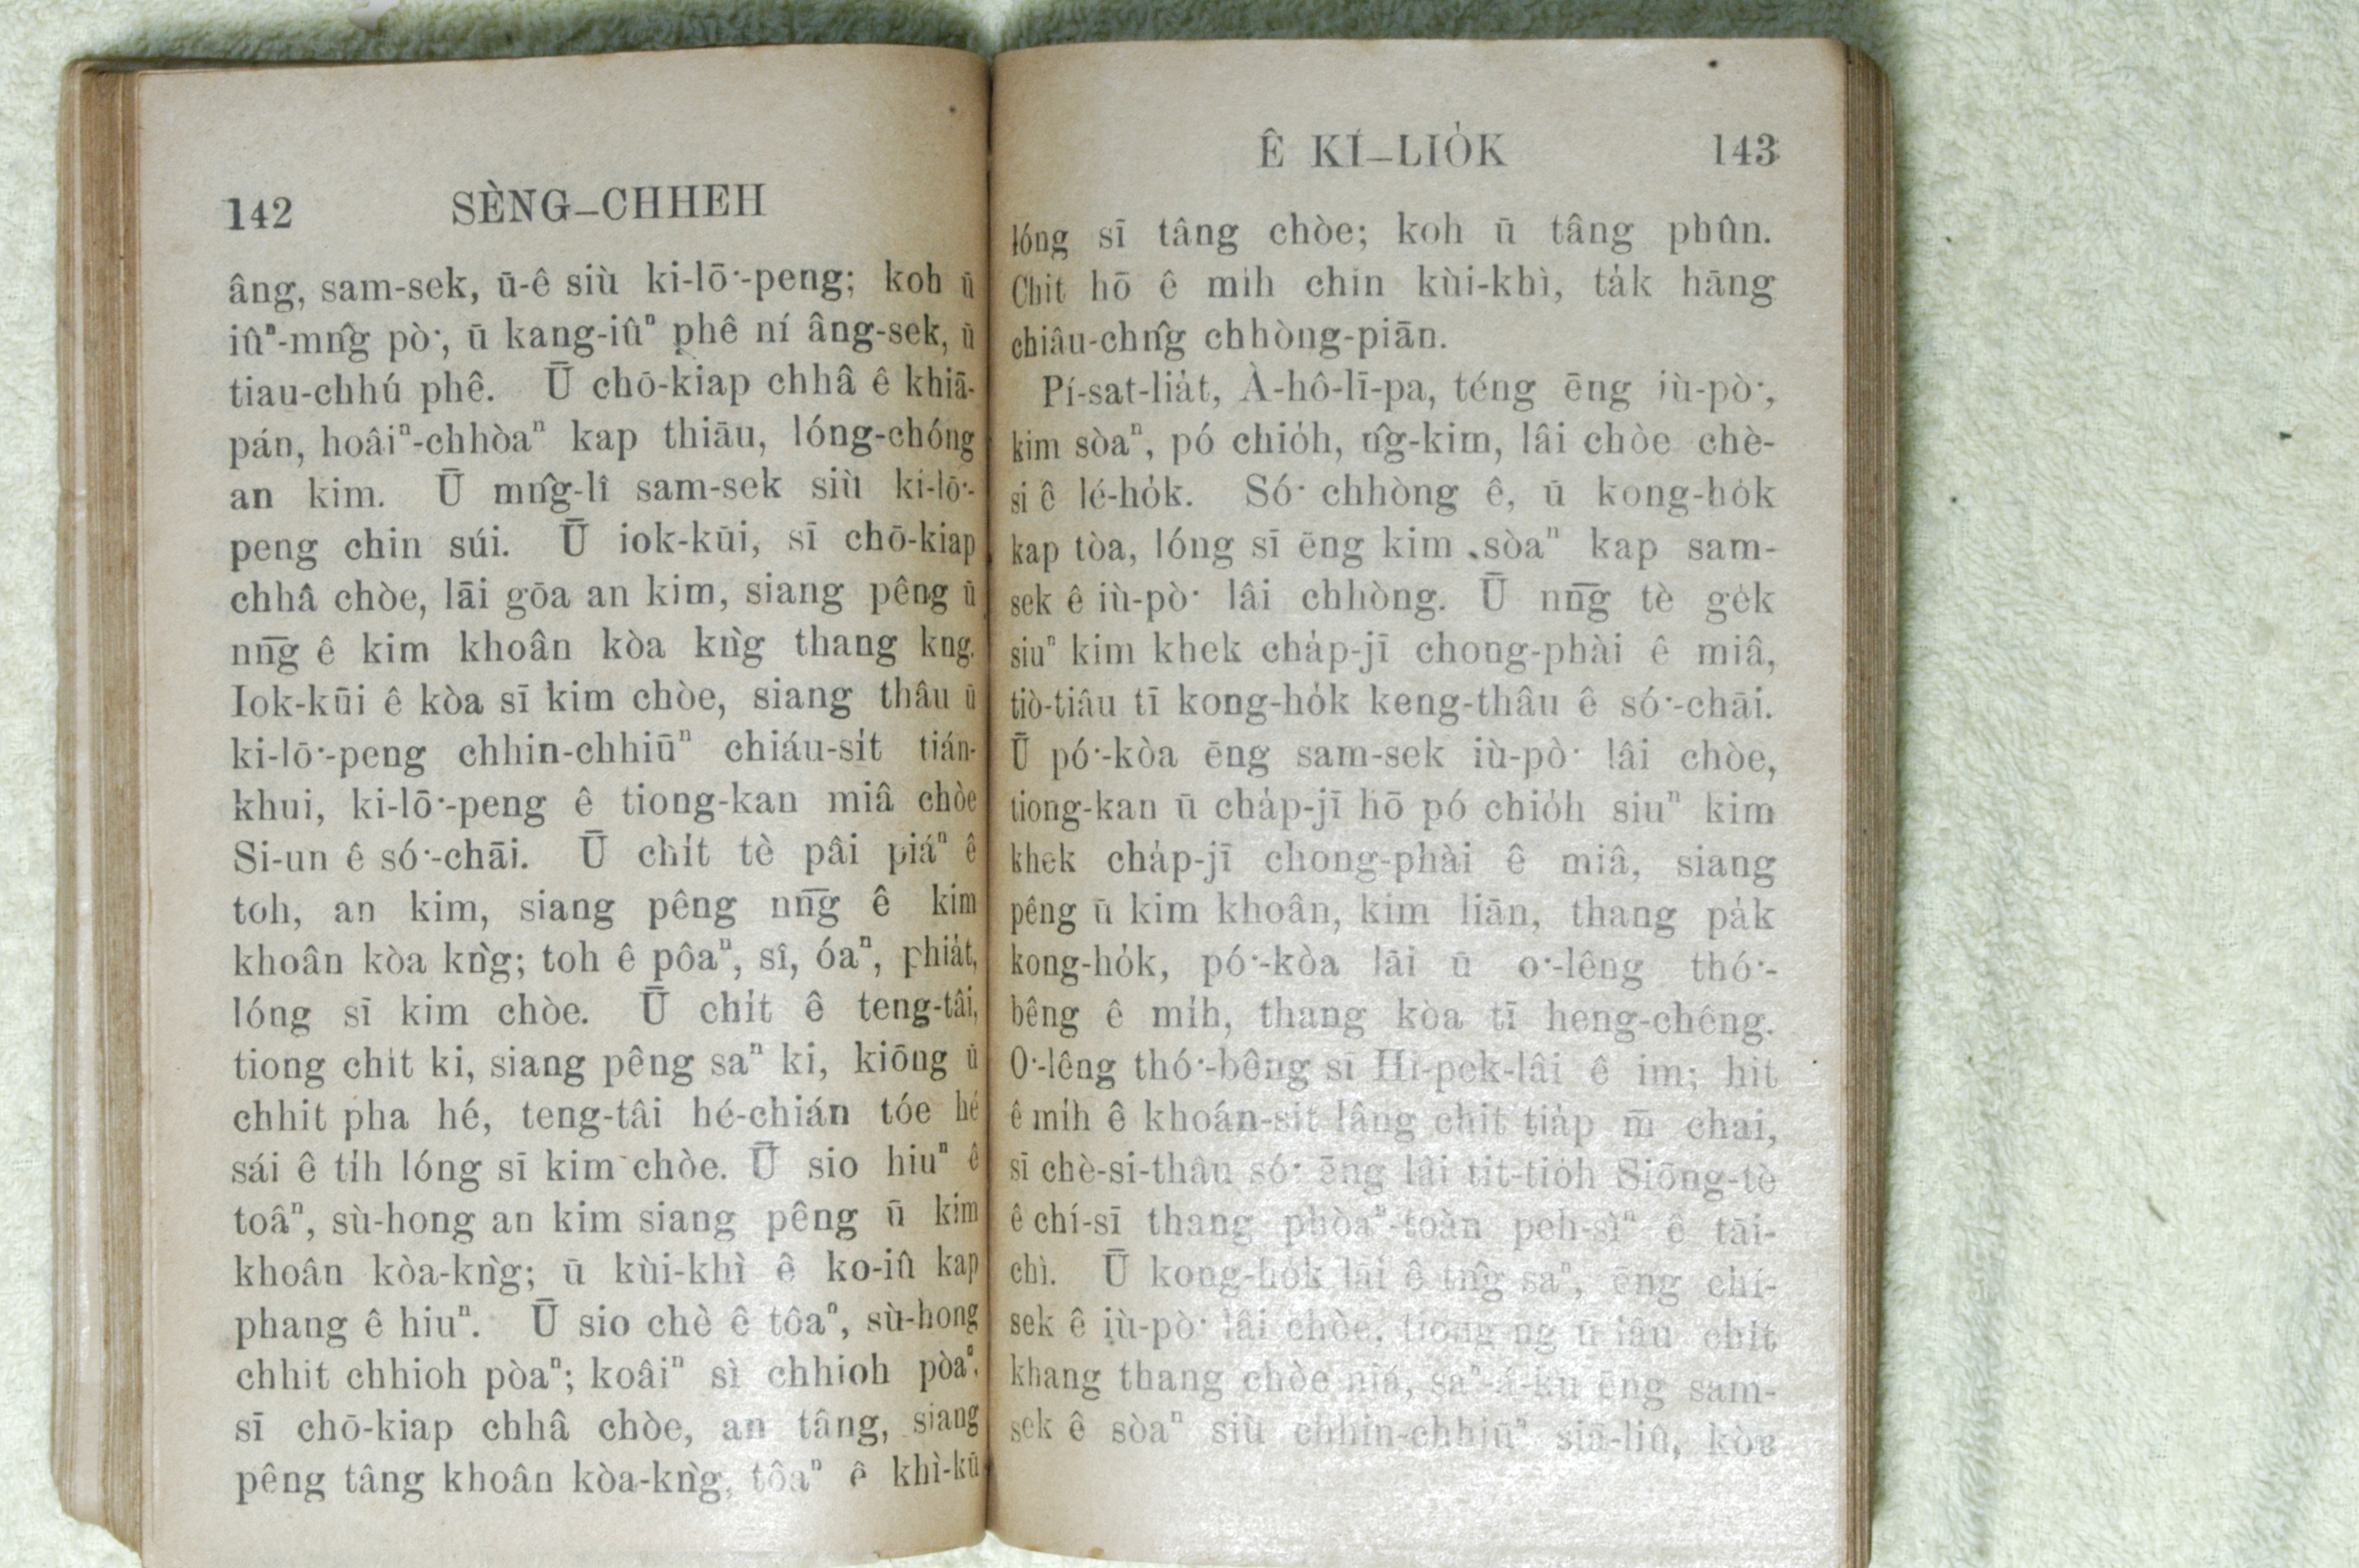 142 SÈNG-CHHEH
âng, sam-sek, ū-ê siù ki-lō͘-peng; koh ū
iûⁿ-mn̂g pò͘, ū kang-iûⁿ phê ní âng-sek, ū
tiau-chhú phê. Ū chō-kiap chhâ ê khiā-
pán, hoâiⁿ-chhòaⁿ kap thiāu, lóng-chóng
an kim. Ū mn̂g-lî sam-sek siù ki-lō͘-
peng chin súi. Ū iok-kūi, sī chō-kiap
chhâ chòe, lāi gōa an kim, siang pêng ū
nn̄g ê kim khoân kòa kǹg thang kng.
Iok-kūi ê kòa sī kim chòe, siang thâu ū
ki-lō͘-peng chhin-chhiūⁿ chiáu-si̍t tián-
khui, ki-lō͘-peng ê tiong-kan miâ chòe
Si-un ê só͘-chāi. Ū chi̍t tè pâi piáⁿ ê
toh, an kim, siang pêng nn̄g ê kim
khoân kòa kǹg; toh ê pôaⁿ, sî, óaⁿ, phia̍t,
lóng sī kim chòe. Ū chi̍t ê teng-tâi,
tiong chit ki, siang pêng saⁿ ki, kiōng ū
chhit pha hé, teng-tâi hé-chián tóe hé
sái ê ti̍h lóng sī kim chòe. Ū sio hiuⁿ ê
toâⁿ, sù-hong an kim siang pêng ū kim
khoân kòa-kǹg; ū kùi-khì ê ko-iû kap
phang ê hiuⁿ. Ū sio chè ê tôaⁿ, sù-hong
chhit chhioh pòaⁿ; koâiⁿ sì chhioh pòaⁿ,
sī chō-kiap chhâ chòe, an tâng, siang
pêng tâng khoân kòa-kǹg, tôaⁿ ê khì-kū
Ê KÍ-LIO̍K 143
lóng sī tâng chòe; koh ū tâng phûn.
Chit hō ê mi̍h chin kùi-khì, ta̍k hāng
chiâu-chn̂g chhòng-piān.
Pí-sat-lia̍t, À-hô-lī-pa, téng ēng iù-pò͘,
kim sòaⁿ, pó chio̍h, n̂g-kim, lâi chòe chè-
si ê lé-ho̍k. Só͘ chhòng ê, ū kong-ho̍k
kap tòa, lóng sī ēng kim sòaⁿ kap sam-
sek ê iù-pò͘ lâi chhòng. Ū nn̄g tè ge̍k
siuⁿ kim khek cha̍p-jī chong-phài ê miâ,
tiò-tiâu tī kong-ho̍k keng-thâu ê só͘-chāi.
Ū pó͘-kòa ēng sam-sek iù-pò͘ lâi chòe,
tiong-kan ū cha̍p-jī hō pó chio̍h siuⁿ kim
khek cha̍p-jī chong-phài ê miâ, siang
pêng ū kim khoân, kim liān, thang pa̍k
kong-ho̍k, pó͘-kòa lāi ū o͘-lêng thó͘-
bêng ê mi̍h, thang kòa tī heng-chêng.
O͘-lêng thó͘-bêng sī Hi-pek-lâi ê im; hit
ê mi̍h ê khoán-sit lâng chit tia̍p m̄ chai,
sī chè-si-thâu só͘ ēng lâi tit-tio̍h Siōng-tè
ê chí-sī thang phòaⁿ-toàn peh-sìⁿ ê tāi-
chì. Ū kong-ho̍k lāi ê tn̂g saⁿ, ēng chí-
sek ê iù-pò͘ lâi chòe, tiong ng ū lâu chit
khang thang chòe niá, saⁿ-á-ku ēng sam-
sek ê sòaⁿ siù chhin-chhiūⁿ siā-liû, kòe